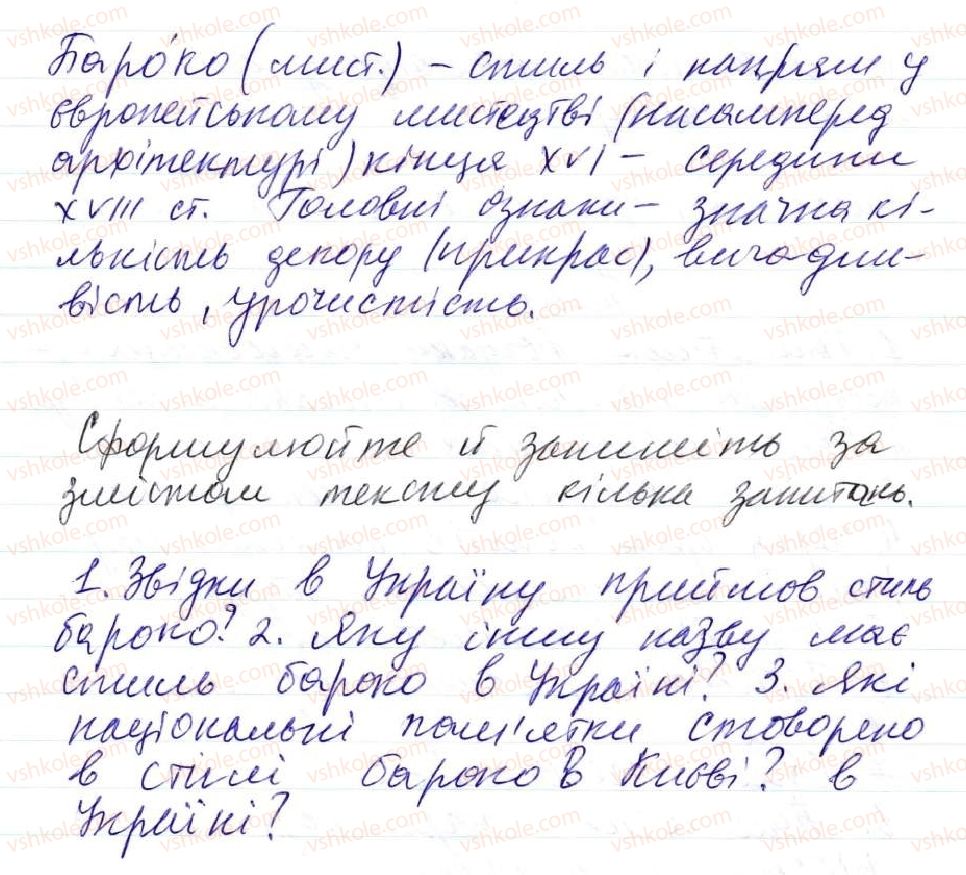 Баро́ко (мист.) – стиль і напрям у
європейському мистецтві (насамперед
архітектурі) кінця XVI – середини
XVIII ст. Головні ознаки – значна кі-
лькість декору (прикрас), вигадли-
вість, урочистість.
Сформулюйте й запишіть за
змістом тексту кілька запитань.
1. Звідки в Україну прийшов стиль
бароко? 2. Яку іншу назву має
стиль бароко в Україні? 3. Які
національні пам'ятки створено
в стилі бароко в Києві? в
Україні?
vshkole.com